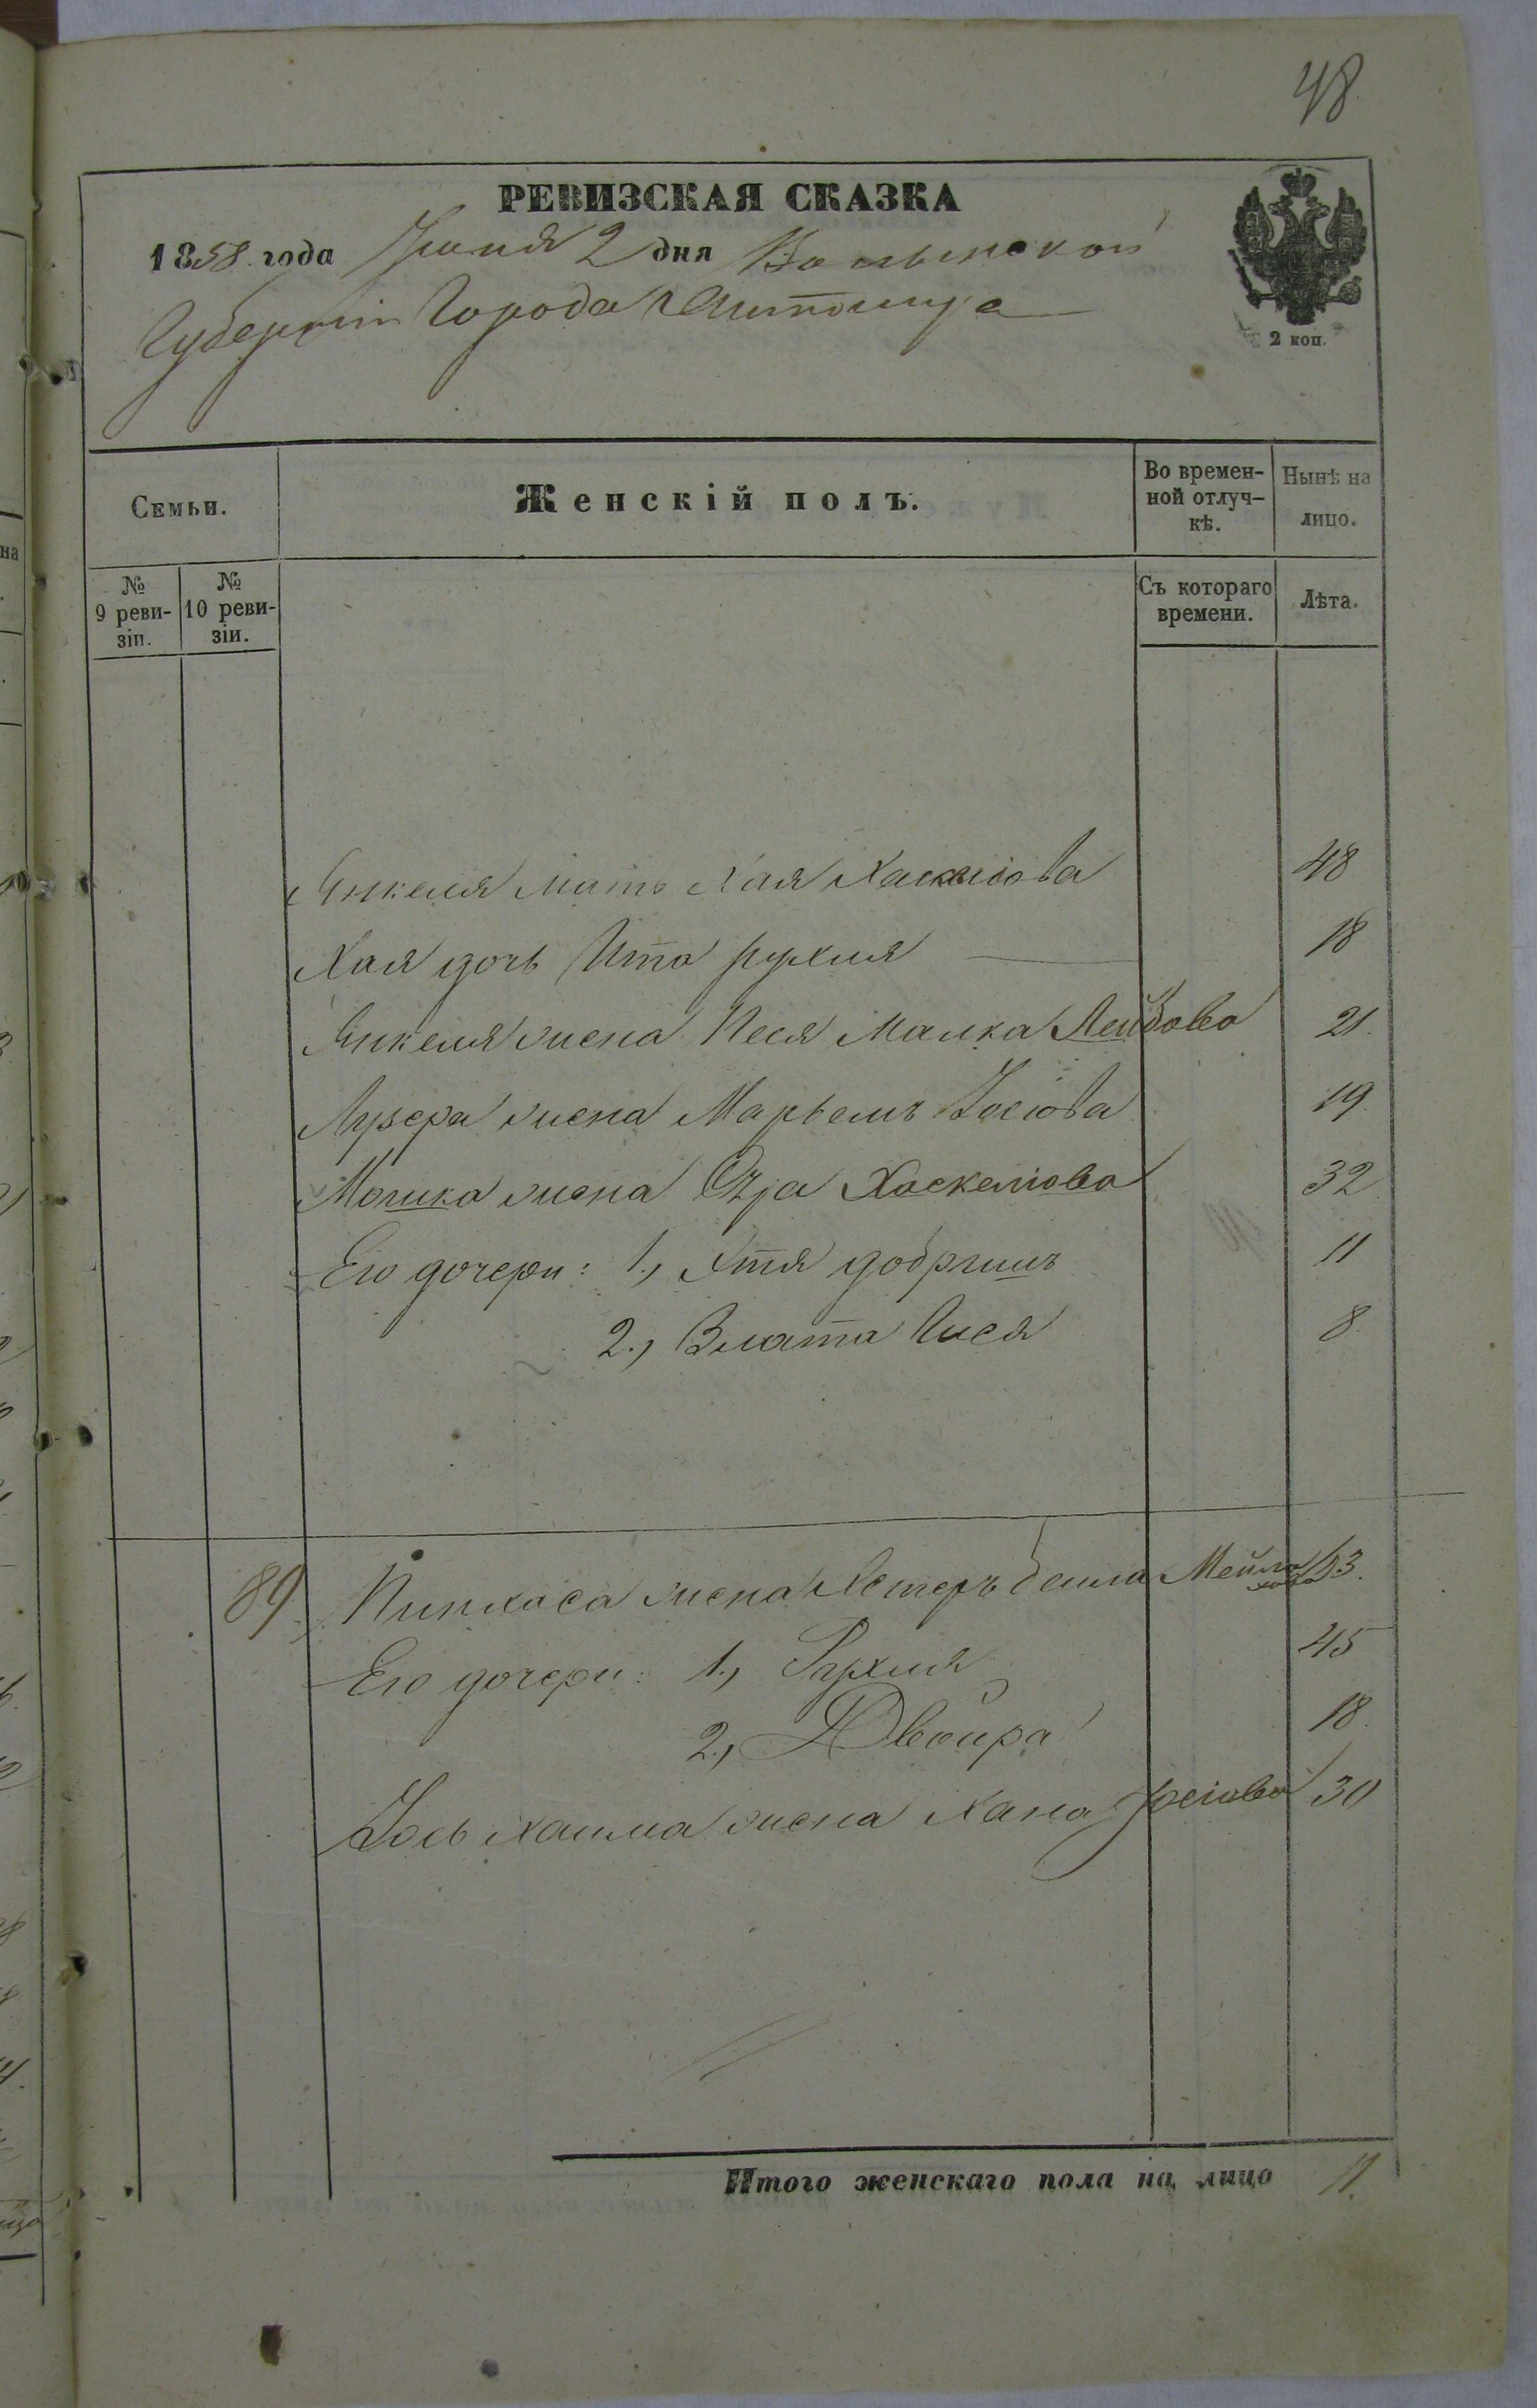 48
РЕВИЗСКАЯ СКАЗКА
1858 года Іюня 2 дня Волынской
Губерніи Города Житомира
2 коп.
Семьи.
Женскій полъ.
Во времен-
ной отлуч-
кѣ.
Нынѣ на
лицо.
№
9 реви-
зіи.
№
10 реви-
зіи.
Съ котораго
времени.
Лѣта.
Янкеля мать Хая Хаскелiова 48
Хая дочь Ита Рухля 18
Янкеля жена Песя Малка Лейбова 21.
Лузера жена Марьемъ Іосіова 19
Мошка жена Хаскелiова 32
Его дочери: 1., Этя добришъ 11
2., Злата Гися 8.
89 Пинхаса жена Эстеръ бейла 63.
Его дочери: 1., Рухля 45
2., Двойра 18.
Іось хаима жена Хана 30
Итого женскаго пола на лицо 11.